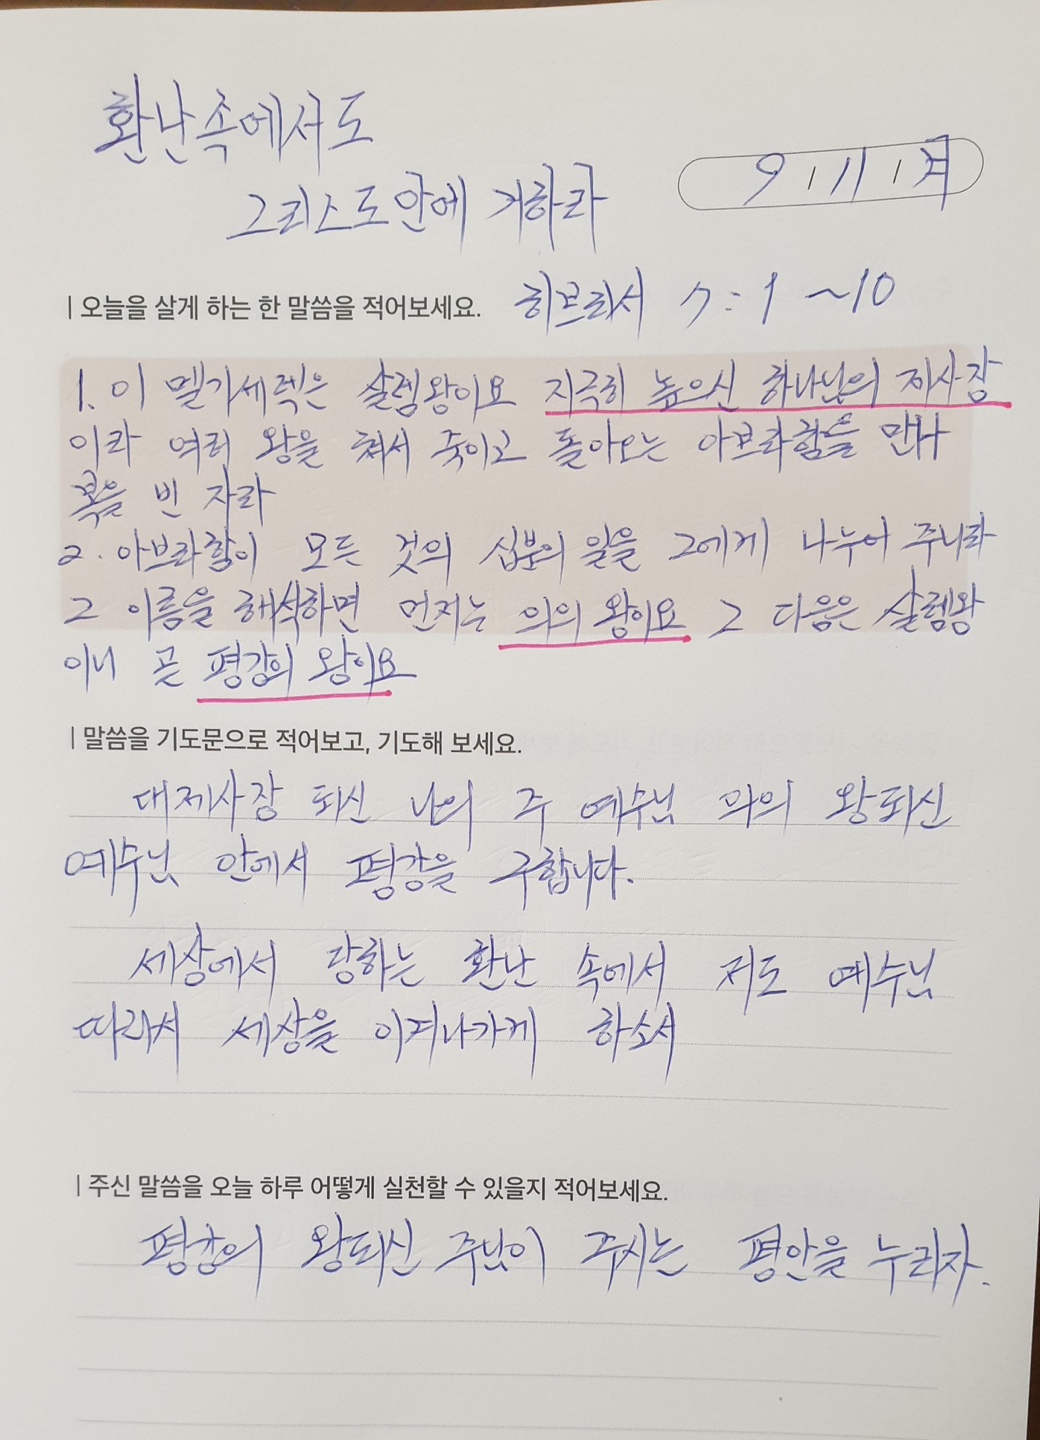 환난속에서도
그리스도안에 거하라
9 / 11 / 월
| 오늘을 살게 하는 한 말씀을 적어보세요. 히브리서 7:1 ~10
1. 이 멜기세덱은 살렘왕이요 지극히 높으신 하나님의 제사장
이라 여러 왕을 쳐서 죽이고 돌아오는 아브라함을 만나
복을 빈 자라
2. 아브라함이 모든 것의 십분의 일을 그에게 나누어 주니라
그 이름을 해석하면 먼저는 의의 왕이요 그 다음은 살렘왕
이니 곧 평강의 왕이요
| 말씀을 기도문으로 적어보고, 기도해 보세요.
대제사장 되신 나의 주 예수님 의의 왕되신
예수님 안에서 평강을 구합니다.
세상에서 당하는 환난 속에서 저도 예수님
따라서 세상을 이겨나가게 하소서
| 주신 말씀을 오늘 하루 어떻게 실천할 수 있을지 적어보세요.
평강의 왕되신 주님이 주시는 평안을 누리자.